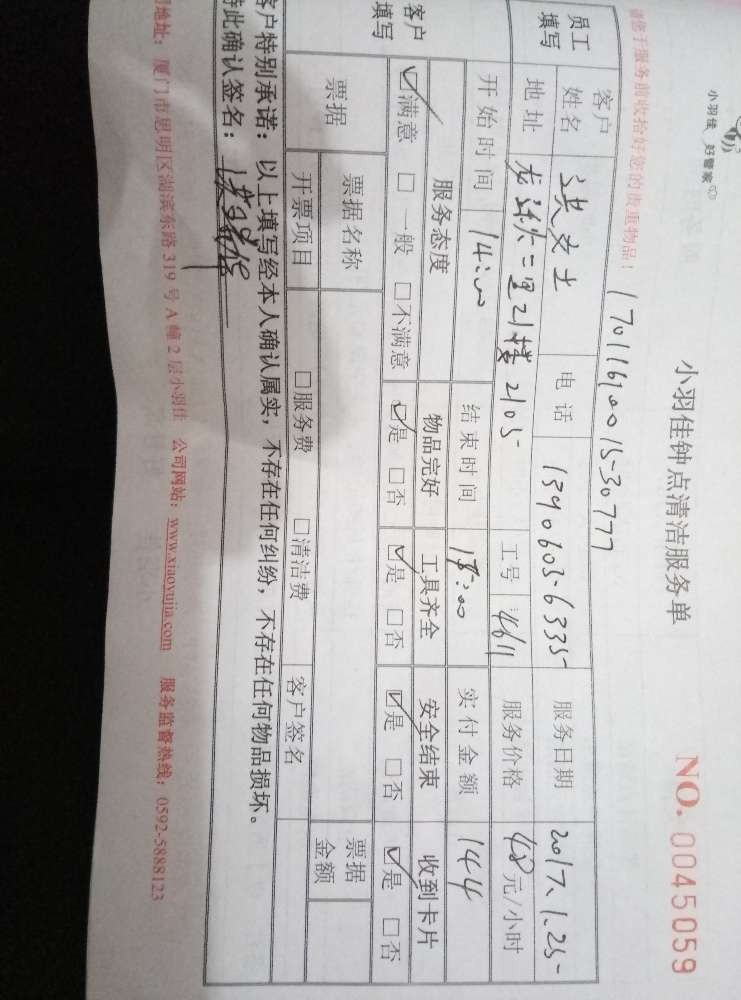 小羽佳 好管家
小羽佳钟点清洁服务单
NO. 0045059
请您于服务前收拾好您的贵重物品！
员工填写
客户姓名 洪女士 电话 服务日期 2017.1.25
地址 工号 4611 服务价格 48元/小时
开始时间 14:00 结束时间 实付金额 144
客户填写
服务态度 物品完好 工具齐全 安全结束 收到卡片
☑满意 □一般 □不满意 ☑是 □否 ☑是 □否 ☑是 □否 ☑是 □否
票据
票据名称 票据金额
开票项目 □服务费 □清洁费 客户签名
客户特别承诺：以上填写经本人确认属实，不存在任何纠纷，不存在任何物品损坏。
特此确认签名：
地址：厦门市思明区湖滨东路319号A幢2层小羽佳 公司网站：www.xiaoyujia.com 服务监督热线：0592-5888123